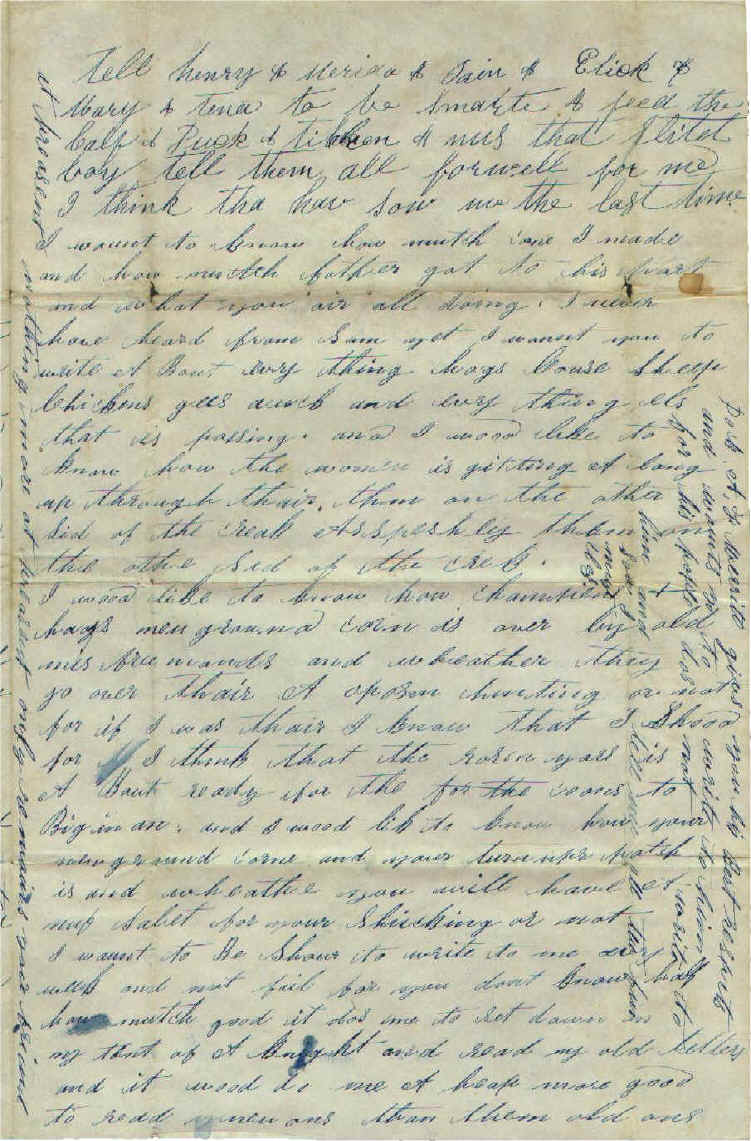 Tell henry & & Jain & Elick &
Mary & tena to be Smarte & feed the
Calf & Puck & & nus that litel
boy tell them all forwell for me
I think tha hav sow me the last time
I wount to know how mutch corn I made
and how mutch father got to his part
and what you air all doing. I never
have heard from Sam yet I wount you to
write A Bout evry thing hogs Sheep
Chickens gees and evry thing els
that is passing. and I wood like to
know how the women is gitting A long
up through thair. them on the other
Sid of the Creak them on
the othe Sid of the Creek.
I wood like to know how
hogs new ground Corn is over by old
mis and wheather they
go over thair A oposm hunting or not
for if I was thair I know that I Shood
for I think that the is
A Bout ready for the for the coons to
Bigin on. and I wood lik to know how your
new ground Corne and your turnups patch
is and wheathe you will have
nuf Salet for your Shucking or not
I wount to Be Shour to write to me evry
week and not fail for you dont know half
how mutch good it dos me to set down in
my tent of A knight and read my old letters
and it wood do me A heap more good
to read new ons than them old ons
at preasent nothing more at preasent only remains your friend
A. J. gives you his best respects
and wounts you to write to him